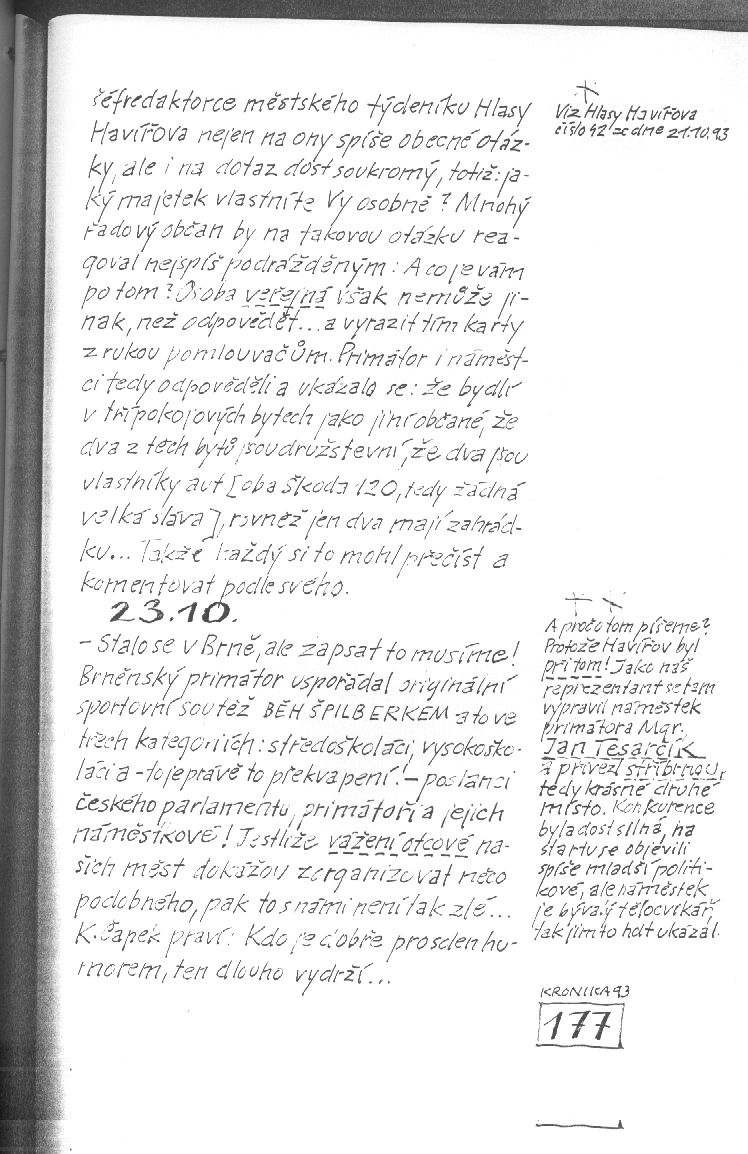 šéfredaktorce městského týdeníku Hlasy
Havířova nejen na ony spíše obecné otáz-
ky, ale i na dotaz dost soukromý, totiž: ja-
ký majetek vlastníte Vy osobně? Mnohý
řadový občan by na takovou otázku rea-
goval nejspíš podrážděným: A co je vám
po tom? Osoba veřejná však nemůže ji-
nak, než odpovědět... a vyrazit tím karty
z rukou pomlouvačům. Primátor i náměst-
ci tedy odpověděli a ukázalo se: že bydlí
v třípokojových bytech jako jiní občané, že
dva z těch bytů jsou družstevní, že dva jsou
vlastníky aut [oba Škoda 120, tedy žádná
velká sláva], rovněž jen dva mají zahrád-
ku... Takže každý si to mohl přečíst a
komentovat podle svého.
23.10.
– Stalo se v Brně, ale zapsat to musíme!
Brněnský primátor uspořádal originální
sportovní soutěž BĚH ŠPILBERKEM a to ve
třech kategoriích: středoškoláci, vysokoško-
láci a – to je právě to překvapení! – poslanci
českého parlamentu, primátoři a jejich
náměstkové! Jestliže vážení otcové na-
šich měst dokážou zorganizovat něco
podobného, pak to s námi není tak zlé...
K. Čapek praví: Kdo je dobře prosolen hu-
morem, ten dlouho vydrží...
+
Viz Hlasy Havířova
číslo 42 ze dne 21.10.93
+ +
A proč o tom píšeme?
Protože Havířov byl
při tom! Jako náš
reprezentant se tam
vypravil náměstek
primátora Mgr.
Jan Tesarčík
a přivezl stříbrnou,
tedy krásné druhé
místo. Konkurence
byla dost silná, na
startu se objevili
spíše mladší politi-
kové, ale náměstek
je bývalý tělocvikář,
tak jim to holt ukázal.
KRONIKA 93
177